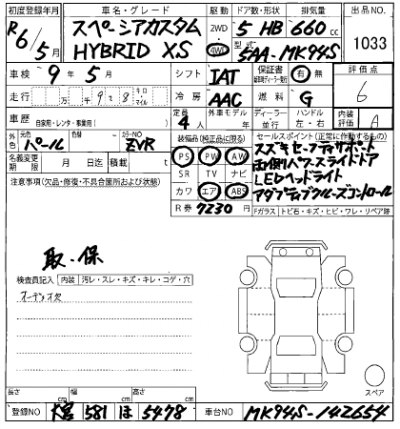 初度登録年月 車名・グレード 駆動 ドア数・形状 排気量 出品NO.
R6/5月 スペーシアカスタム HYBRID XS 2WD 4WD 5 HB 660cc 1033
型式 5AA-MK94S
車検 9年5月 シフト IAT 保証書 有 無 評価点
走行 万 千 百 キロ・マイル 冷房 AAC 燃料 G 6
車歴 自家用・レンタ・事業用( ) 定員 4人 外車モデル 年 ディーラー・並行 ハンドル 左・右 内装評価 A
外色 元色 パール カラーNO ZVR 装備品(純正品に限る) セールスポイント(正常に作動するもの)
名義変更期限 月 日迄 積載 t PS PW AW スズキセーフティサポート
注意事項(欠品・修復・不具合箇所および状態) SR TV ナビ 両側パワースライドドア
LEDヘッドライト
カワ エア ABS アダプティブクルーズコントロール
R券 9230円 Fガラス トビ石・キズ・ヒビ・ワレ・リペア跡
取・保
検査員記入 内装 汚レ・スレ・キズ・キレ・コゲ・穴
オーディオ欠
スペア
長さ cm 幅 cm 高さ cm
登録NO 大宮 581 ほ 5478 車台NO MK94S-142654